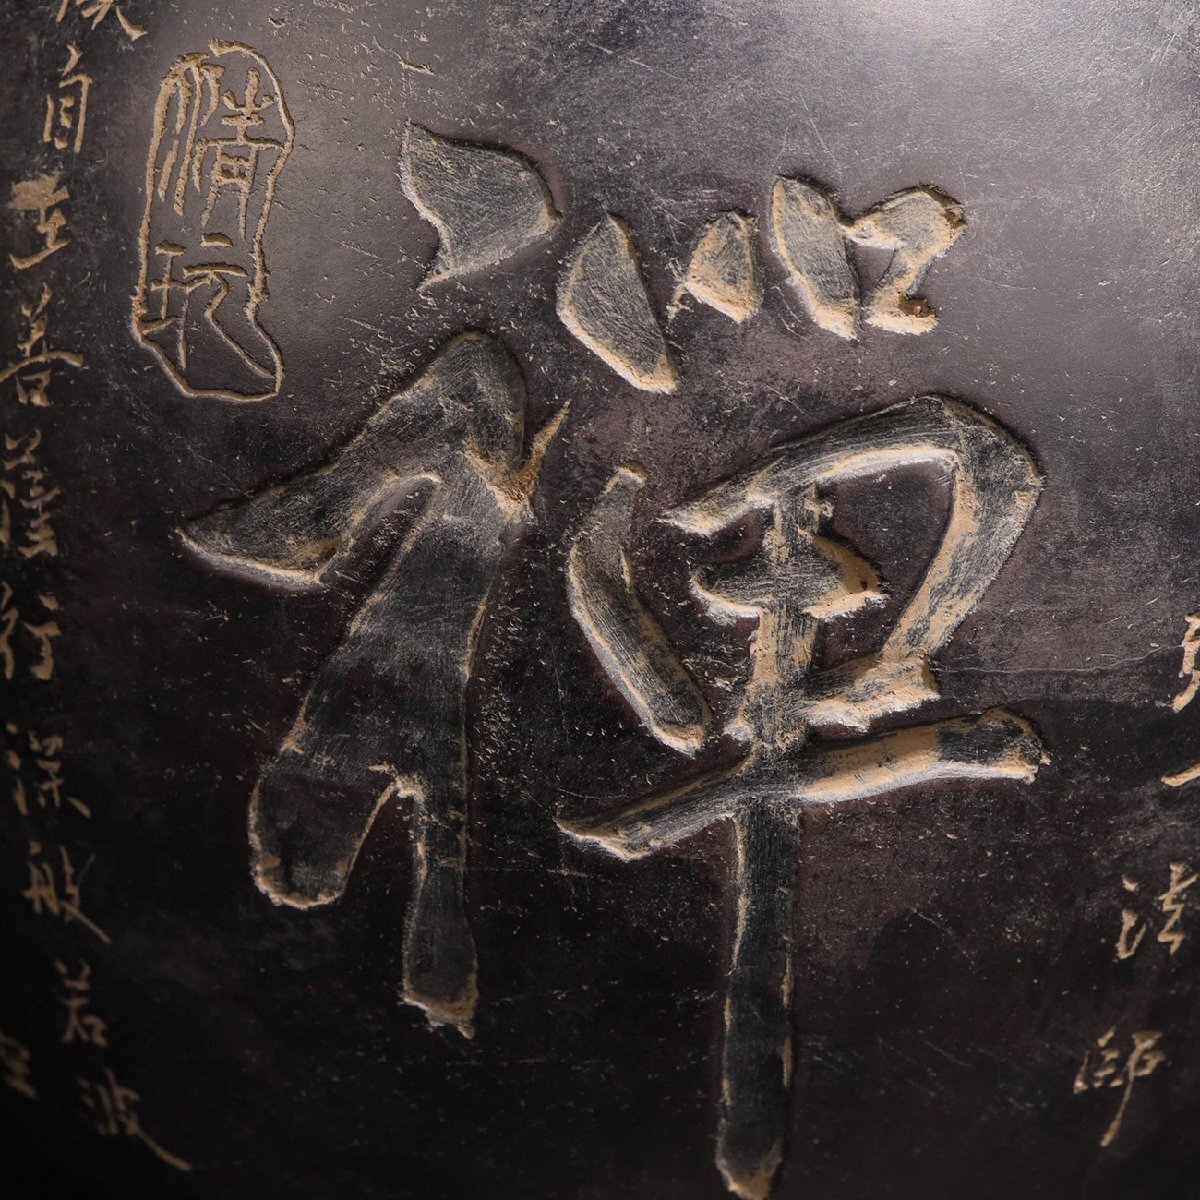 法師
禪
清玩
自在菩薩行深般若波